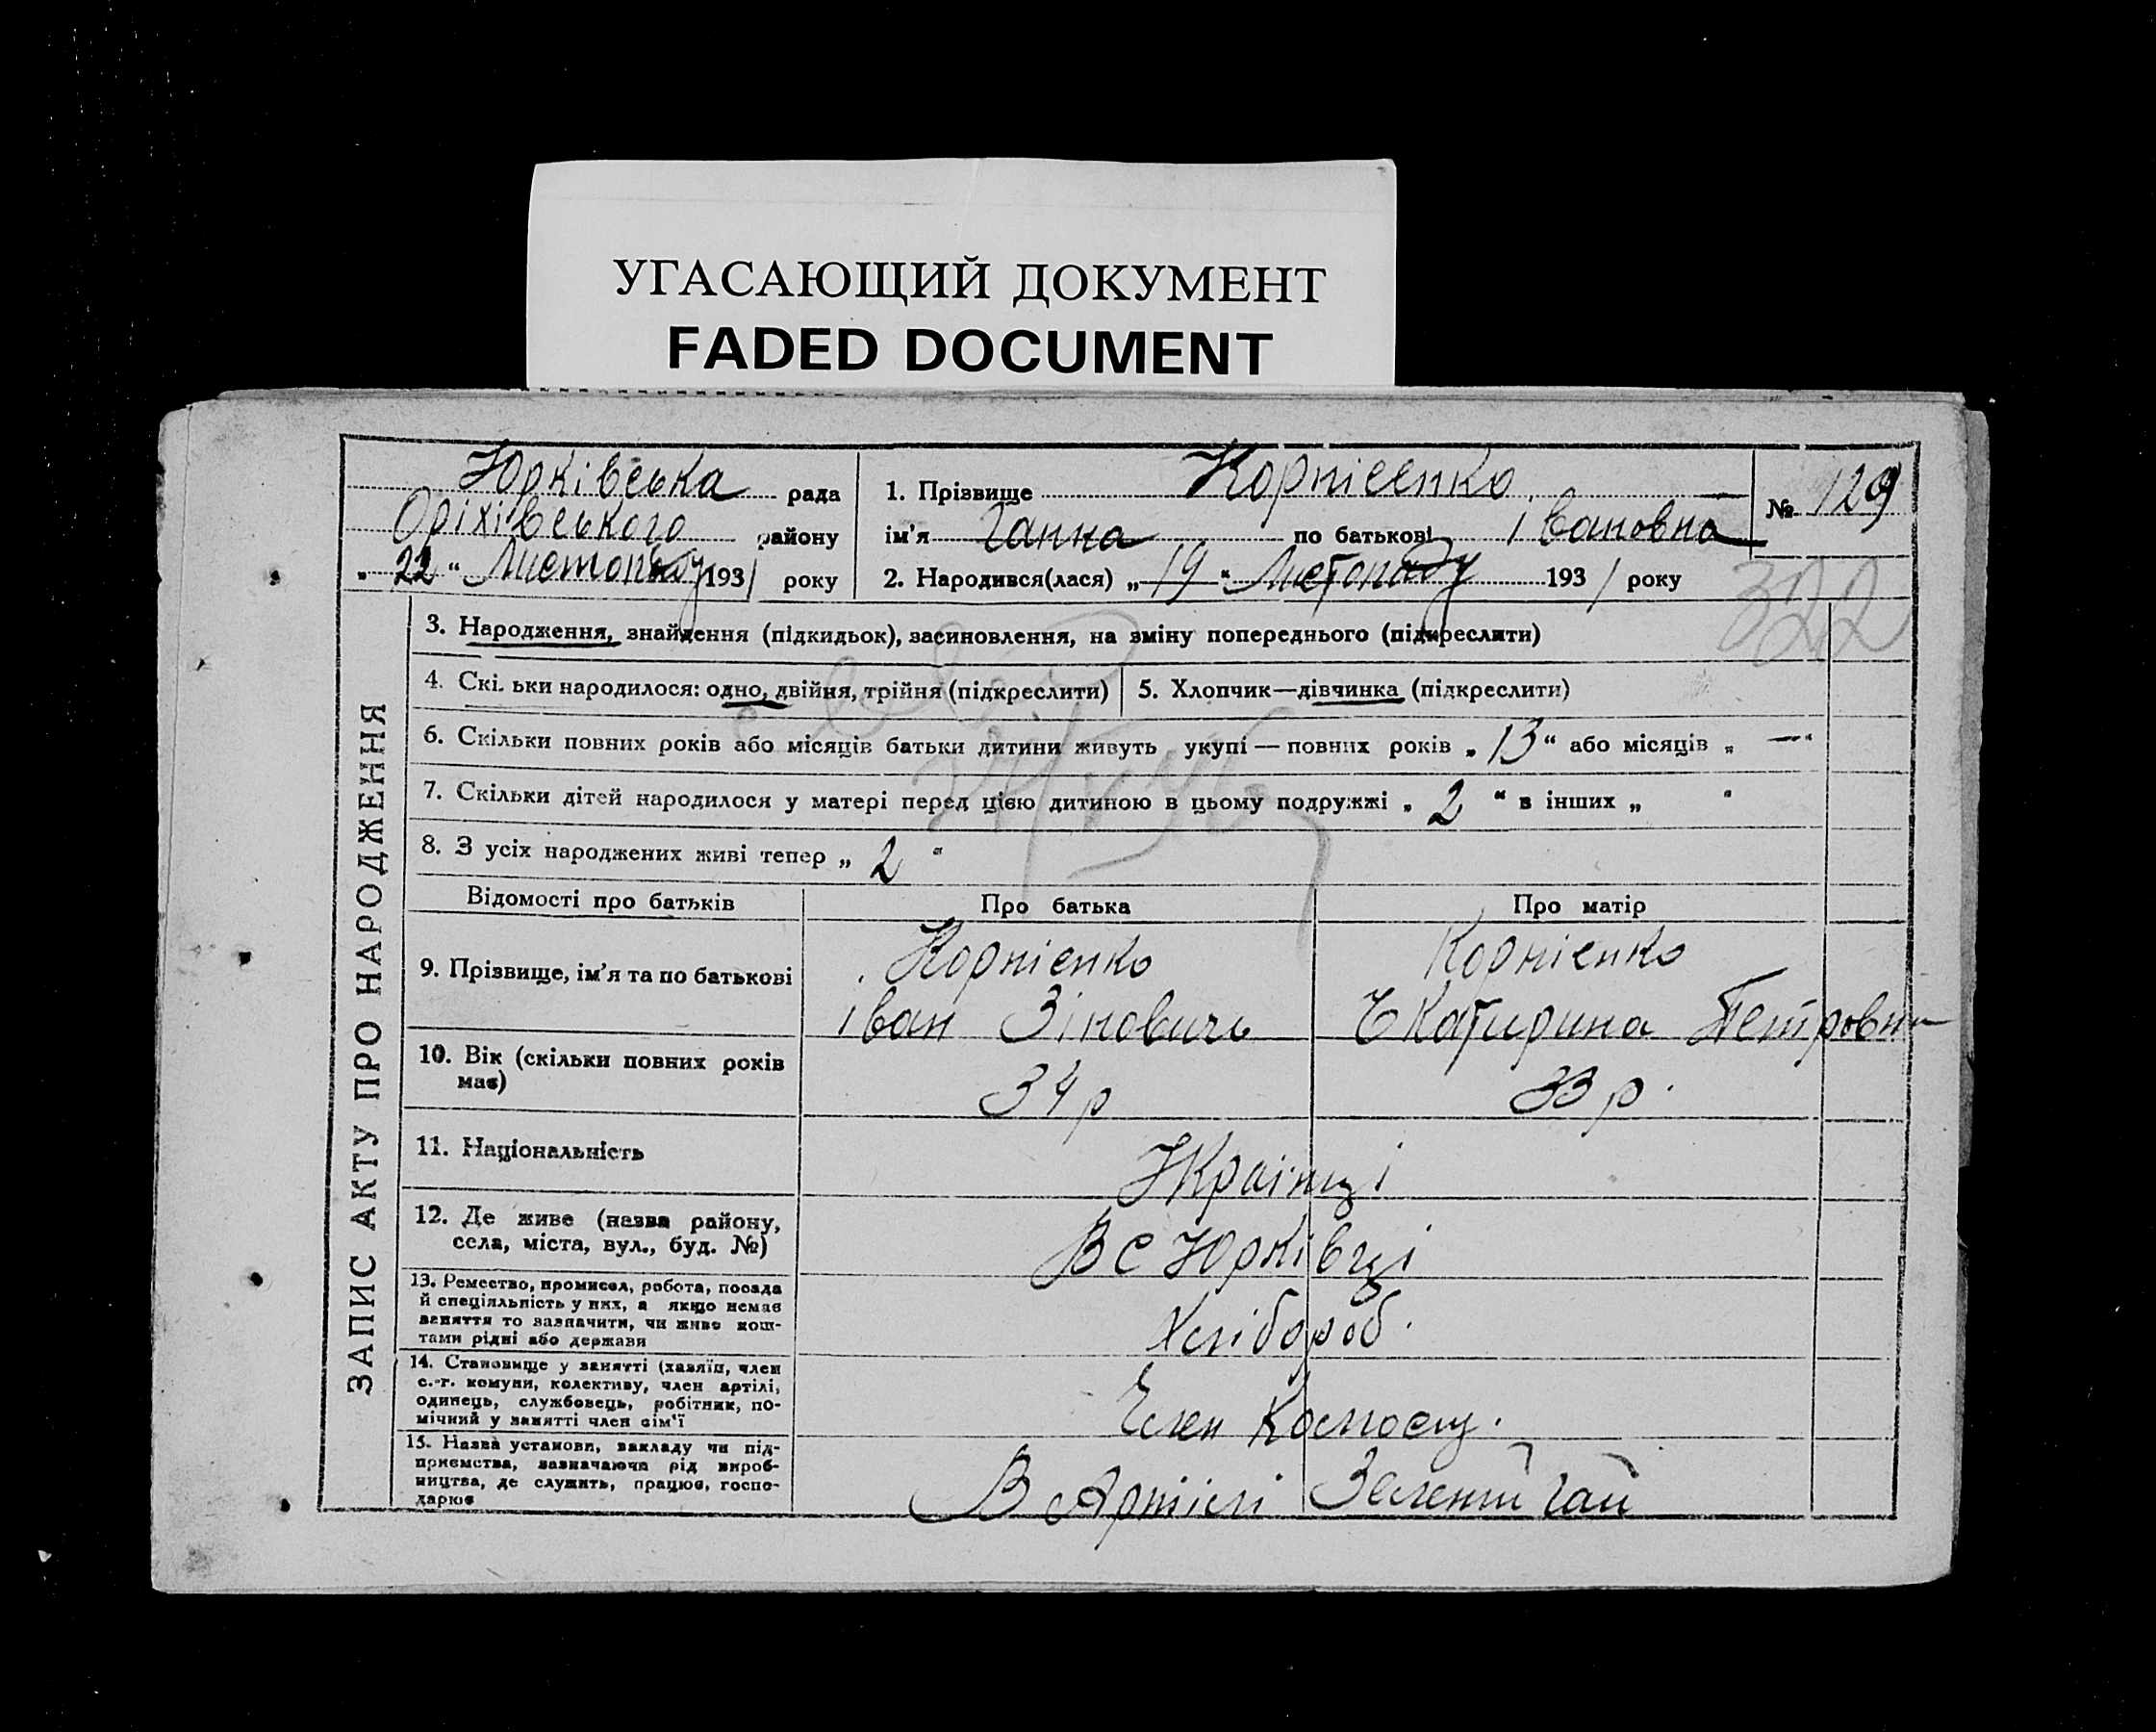 УГАСАЮЩИЙ ДОКУМЕНТ
FADED DOCUMENT
Юрківська рада
Оріхівського району
„ 22 “ Листопаду 1931 року
1. Прізвище Корнієенко
ім'я Ганна по батькові Івановна
2. Народився(лася) „ 19 “ Листопаду 1931 року
№ 129
322
ЗАПИС АКТУ ПРО НАРОДЖЕННЯ
3. Народження, знайдення (підкидьок), засиновлення, на зміну попереднього (підкреслити)
4. Скі. ьки народилося: одно, двійня, трійня (підкреслити) 5. Хлопчик—дівчинка (підкреслити)
6. Скільки повних років або місяців батьки дитини живуть укупі — повних років „ 13 “ або місяців „ — “
7. Скільки дітей народилося у матері перед цією дитиною в цьому подружжі „ 2 “ в інших „ “
8. З усіх народжених живі тепер „ 2 “
Відомості про батьків Про батька Про матір
9. Прізвище, ім'я та по батькові
Корнієнко
Іван Зіновичь
Корнієнко
Екатирина Петровн
10. Вік (скільки повних років має)
34 р
33 р.
11. Національність
Українці
12. Де живе (назва району,
села, міста, вул., буд. №)
В с Юрківці
13. Ремество, промисел, робота, посада
й спеціяльність у них, а якщо немає
заняття то зазначити, чи живе кош-
тами рідні або держави
Хлібороб.
14. Становище у занятті (хазяїн, член
с.-г. комуни, колективу, член артілі,
одинець, службовець, робітник, по-
мічний у занятті член сім'ї
Член Колгоспу.
15. Назва установи, закладу чи під-
приємства, зазначаючи рід вироб-
ництва, де служить, працює, госпо-
дарює
В Артілі Зелений Гай